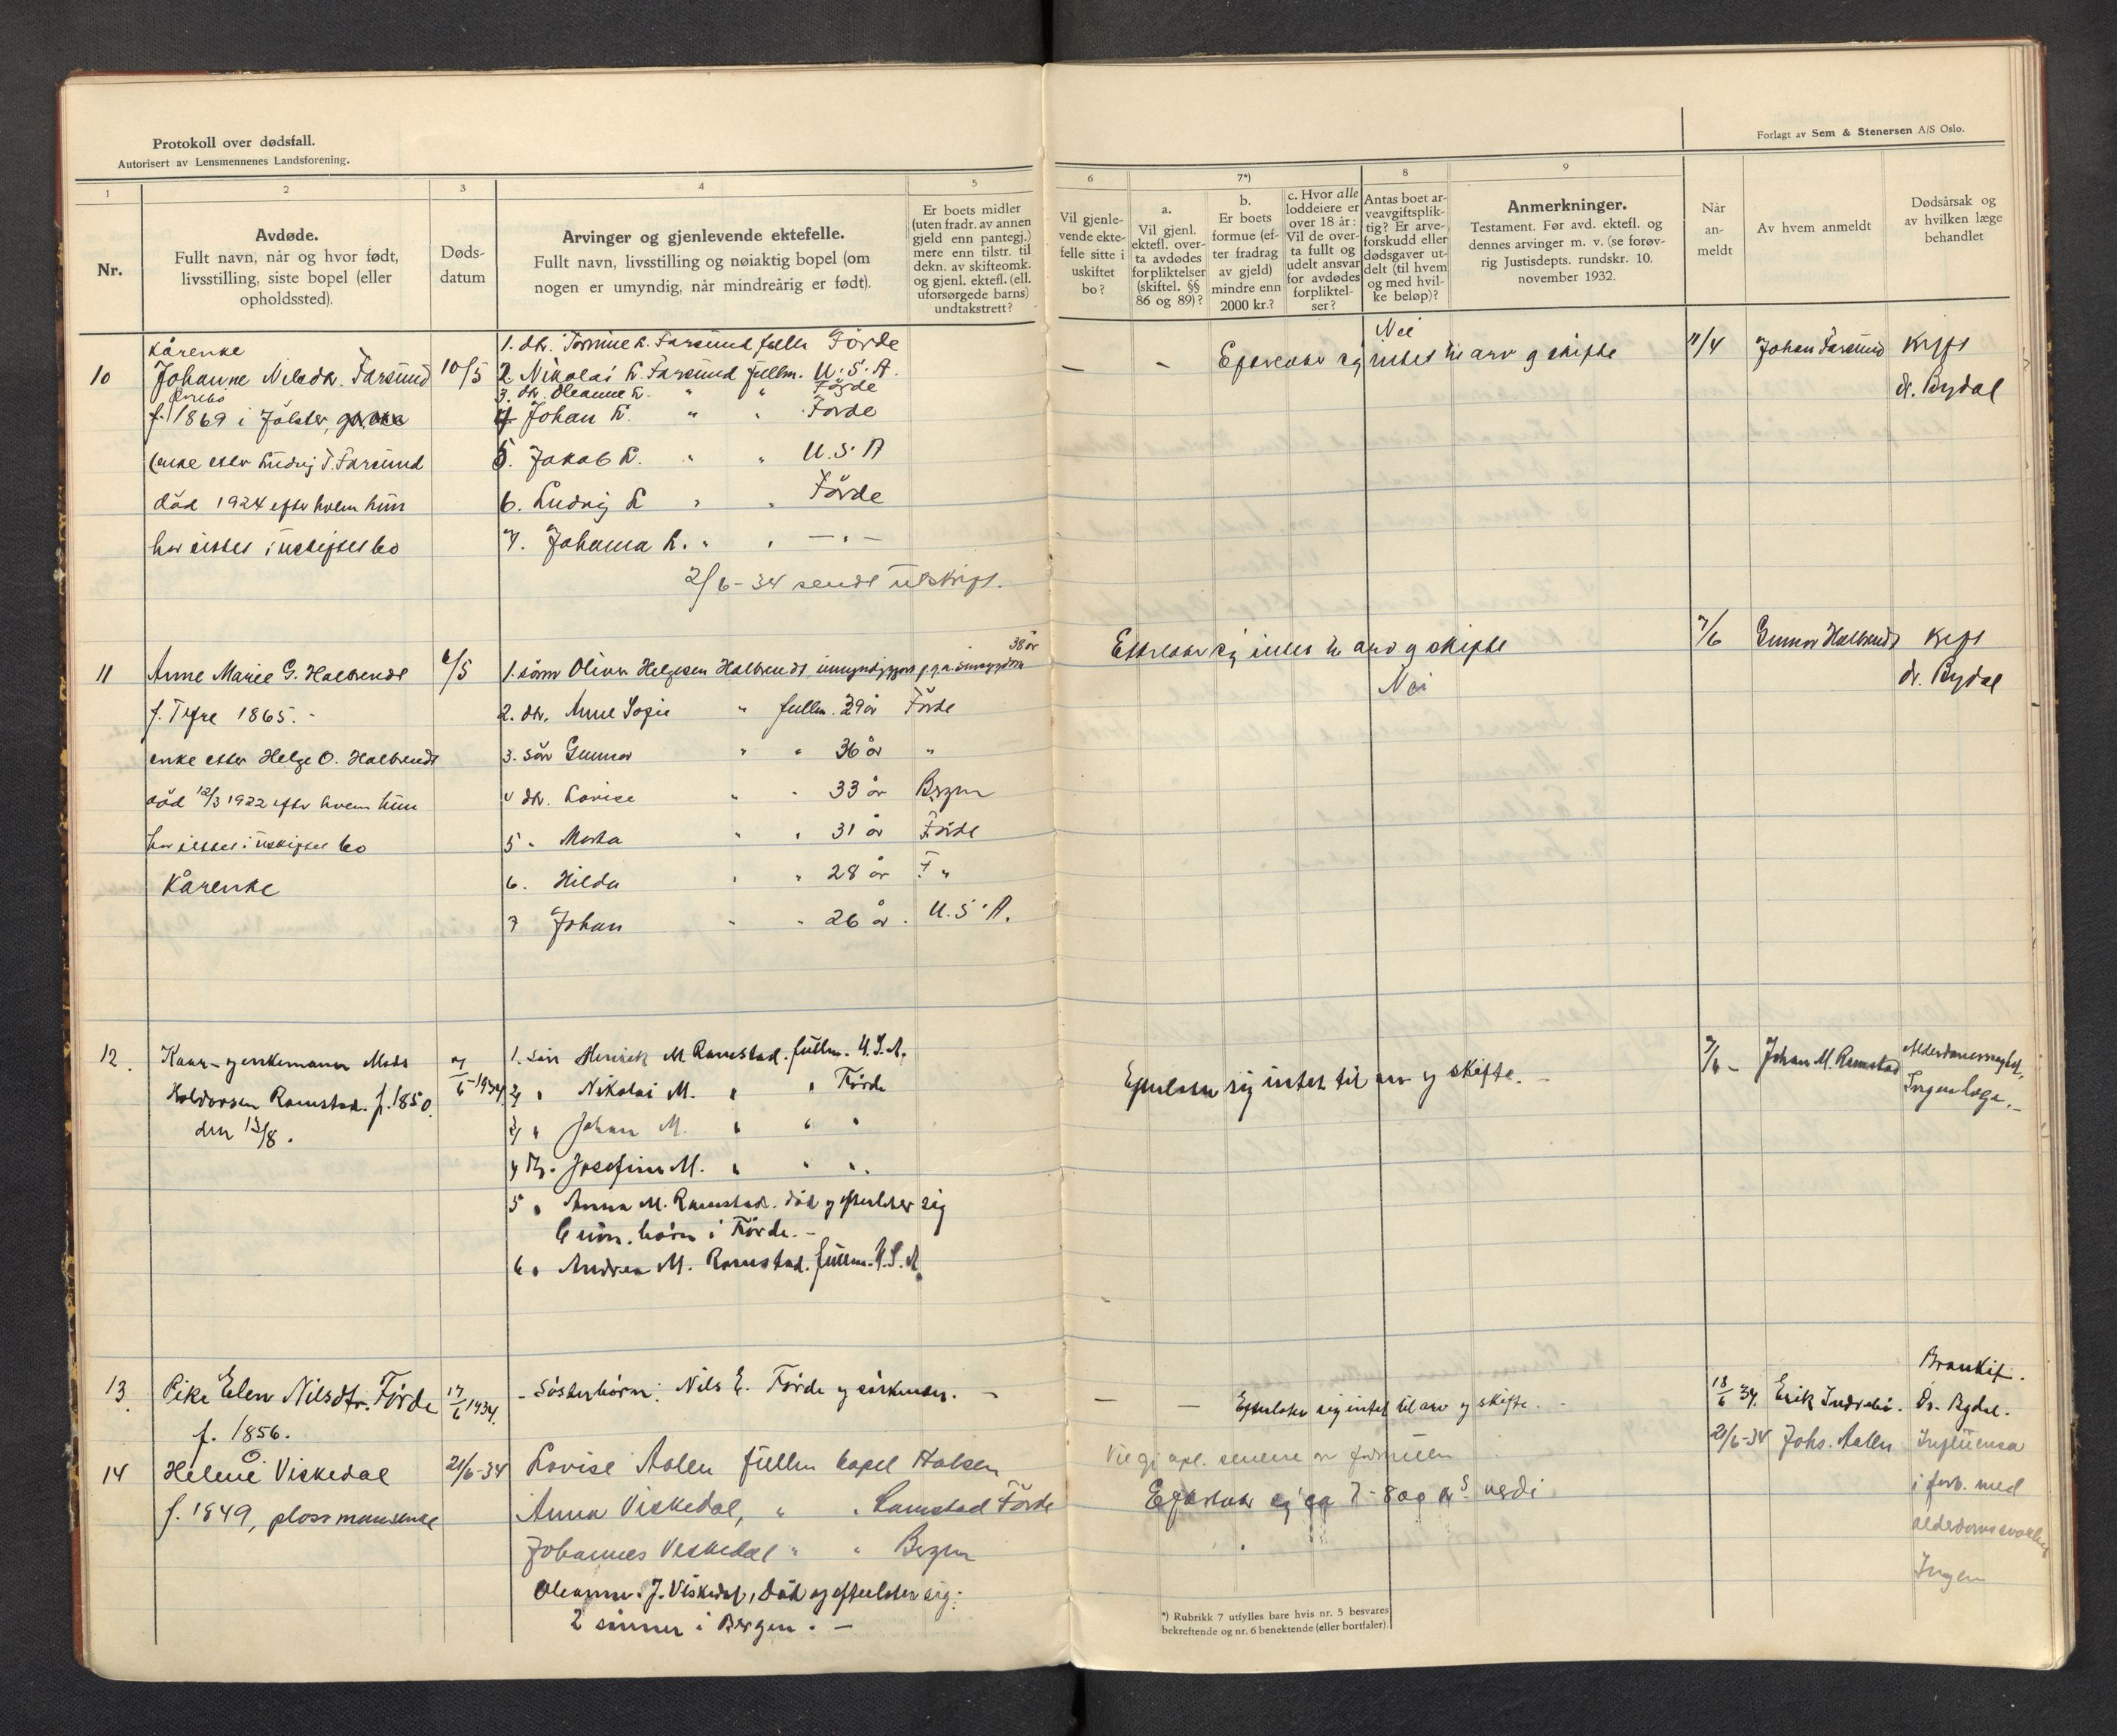 Protokoll over dødsfall.
Autorisert av Lensmennenes Landsforening.
Forlagt av Sem & Stenersen A/S Oslo.
1
2
3
4
5
6
7*)
8
9
Nr.
Avdøde.
Fullt navn, når og hvor født,
livsstilling, siste bopel (eller
opholdssted).
Døds-
datum
Arvinger og gjenlevende ektefelle.
Fullt navn, livsstilling og nøiaktig bopel (om
nogen er umyndig, når mindreårig er født).
Er boets midler
(uten fradr. av annen
gjeld enn pantegj.)
mere enn tilstr. til
dekn. av skifteomk.
og gjenl. ektefl. (ell.
uforsørgede barns)
undtakstrett?
Vil gjenle-
vende ekte-
felle sitte i
uskiftet
bo?
a.
Vil gjenl.
ektefl. over-
ta avdødes
forpliktelser
(skiftel. §§
86 og 89)?
b.
Er boets
formue (ef-
ter fradrag
av gjeld)
mindre enn
2000 kr.?
c. Hvor alle
loddeiere er
over 18 år:
Vil de over-
ta fullt og
udelt ansvar
for avdødes
forpliktel-
ser?
Antas boet ar-
veavgiftsplik-
tig? Er arve-
forskudd eller
dødsgaver ut-
delt (til hvem
og med hvil-
ke beløp)?
Anmerkninger.
Testament. Før avd. ektefl. og
dennes arvinger m. v. (se forøv-
rig Justisdepts. rundskr. 10.
november 1932.
Når
an-
meldt
Av hvem anmeldt
Dødsårsak og
av hvilken læge
behandlet
10
Kårenke
Johanne Nilsdtr. Farsund
f. 1869 i Jølster,
enke efter Ludvig T. Farsund
død 1924 efter hvem hun
har sittet i uskiftet bo
10/5
1. dtr. L. Farsund fullm Förde
2 Nikolai L. Farsund fullm. U.S.A.
3. dtr. Oleanne L. " " Förde
4 Johan L. " " Förde
5. Jakob L. " " U.S.A
6. Ludvig L " " Förde
7. Johanna L. " " — " —
2/6-34 sendt utskrift.
– – Efterlater sig intet til arv og skifte
Nei
11/4
Johan Farsund
Kreft
dr. Bydal
11
Anne Marie G. Halbrendt
f. Tefre 1865. -
enke etter Helge O. Halbrendt
død 12/3 1922 efter hvem hun
har sittet i uskiftet bo
Kårenke
6/5
1. sönn Oliver Helgesen Halbrendt, umyndiggjort p.g.a. 38 år
2. dtr. Anne Sofie " fullm. 39 år Förde
3. sön Gunnar " " 36 år "
4 dtr. Lovise " " 33 år Bergen
5 " Marta " " 31 år Förde
6. Hilda " " 28 år F "
7 Johan " " 26 år. U.S.A.
Etterlater sig intet til arv og skifte
Nei
7/6
Gunnar Halbrendt
Kreft
dr. Bydal
12.
Kaar- og enkemann Mads
Haldorsen Ramstad. f. 1850.
den 13/8.
7/6-1934
1. sön Henrik M Ramstad. fullm. U.S.A.
2, " Nikolai M. " " Förde
3, " Johan M. " " "
4 Dtr. Josefine M. " " ".
5 " Anna M. Ramstad. död og efterlater sig
6 um. börn i Förde. -
6 " Andrea M. Ramstad. fullm. U.S.A
Efterlater sig intet til arv og skifte. -
7/6 -
Johan M. Ramstad
Alderdomssvaghet,
Ingen læge. -
13.
Pike Elen Nilsdtr. Förde
f. 1856.
17/6 1934.
- Sösterbörn: Nils E. Förde og söskender. -
– – Efterlater sig intet til arv og skifte. -
18/6 34.
Erik Indrebö.
Bronkit.
Dr. Bydal.
14
Helene Viskedal
f. 1849, plassmannsenke
21/6-34
Lovise Aalen fullm bopel Halsen
Anna Viskedal, " " Ramstad Förde
Johannes Viskedal " " Bergen
Oleanne. J. Viskedal, Död og efterlater sig:
2 sönner i Bergen. -
Vil gi opl. senere om formuen
Efterlater sig ca 7-800 krs verdi
21/6-34
Johs. Aalen
Influensa
i forb. med
alderdomssvakhet
Ingen
*) Rubrikk 7 utfylles bare hvis nr. 5 besvares
bekreftende og nr. 6 benektende (eller bortfaler).